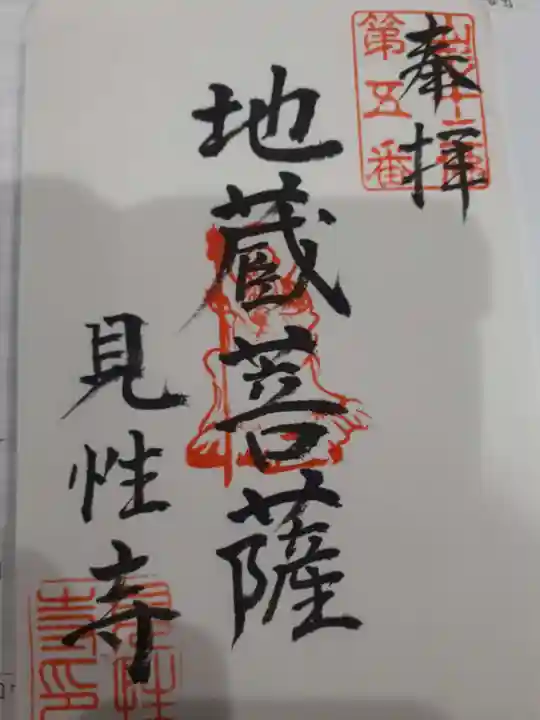 奉拝
第五番
地蔵菩薩
見性寺